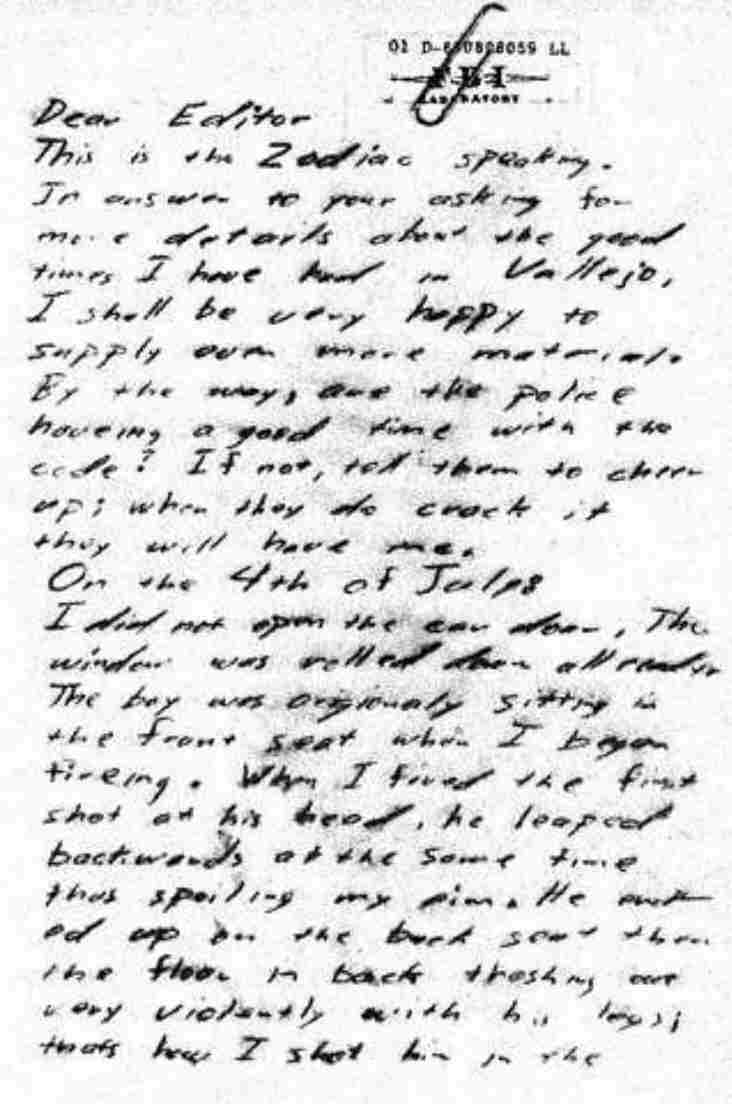 FBI
LABORATORY
Dear Editor
This is the Zodiac speaking.
In answer to your asking for
more details about the good
times I have had in Vallejo,
I shall be very happy to
supply even more material.
By the way, are the police
haveing a good time with the
code? If not, tell them to cheer
up; when they do crack it
they will have me.
On the 4th of July:
I did not open the car door, The
window was rolled down all ready
The boy was origionaly sitting in
the front seat when I began
fireing. When I fired the first
shot at his head, he leaped
backwards at the same time
thus spoiling my aim. He end-
ed up on the back seat then
the floor in back thashing out
very violently with his legs;
thats how I shot him in the